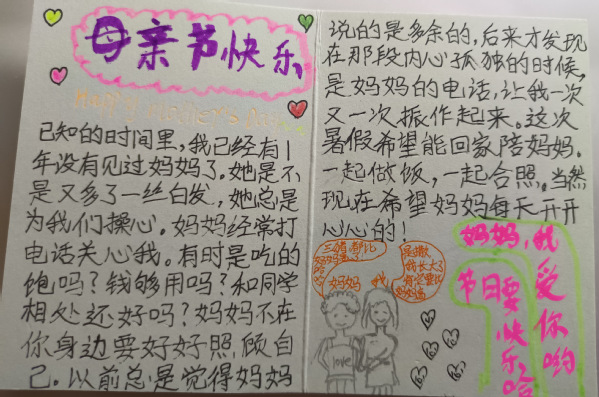 母亲节快乐
Happy Mother's Day
已知的时间里,我已经有1
年没有见过妈妈了。她是不
是又多了一丝白发,她总是
为我们操心。妈妈经常打
电话关心我。有时是吃的
饱吗?钱够用吗?和同学
相处还好吗?妈妈不在
你身边要好好照顾自
己。以前总是觉得妈妈
说的是多余的,后来才发现
在那段内心孤独的时候,
是妈妈的电话,让我一次
又一次振作起来。这次
暑假希望能回家陪妈妈。
一起做饭,一起合照。当然
现在希望妈妈每天开开
心心的!
妈妈
我长大了
love
妈妈,我
爱你哟
节日要快乐哈